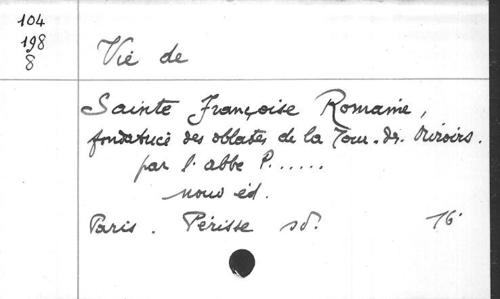 104
198
8
Vie de
Sainte Françoise Romaine,
fondatrice des oblates de la Tour-des-Miroirs.
par l'abbé P......
nouv éd.
Paris. Périsse sd. 16°